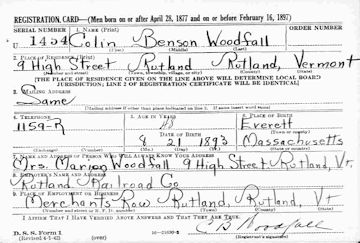 REGISTRATION CARD—(Men born on or after April 28, 1877 and on or before February 16, 1897)
SERIAL NUMBER 1. NAME (Print) ORDER NUMBER
U 1454 Colin Benson Woodfall
(First) (Middle) (Last)
2. PLACE OF RESIDENCE (Print)
9 High Street Rutland Rutland, Vermont
(Number and street) (Town, township, village, or city) (County) (State)
[THE PLACE OF RESIDENCE GIVEN ON THE LINE ABOVE WILL DETERMINE LOCAL BOARD
JURISDICTION; LINE 2 OF REGISTRATION CERTIFICATE WILL BE IDENTICAL]
3. MAILING ADDRESS
Same
[Mailing address if other than place indicated on line 2. If same insert word same]
4. TELEPHONE 5. AGE IN YEARS 6. PLACE OF BIRTH
1159-R Everett
DATE OF BIRTH (Town or county)
8 21 1893 Massachusetts
(Mo.) (Day) (Yr.) (State or country)
7. NAME AND ADDRESS OF PERSON WHO WILL ALWAYS KNOW YOUR ADDRESS
Mrs. Marion Woodfall 9 High Street Rutland, Vt.
8. EMPLOYER'S NAME AND ADDRESS
Rutland Railroad Co
9. PLACE OF EMPLOYMENT OR BUSINESS
Merchants Row Rutland, Rutland, Vt
(Number and street or R. F. D. number) (Town) (County) (State)
I AFFIRM THAT I HAVE VERIFIED ABOVE ANSWERS AND THAT THEY ARE TRUE.
D. S. S. Form 1
(Revised 4-1-42) (over) C B Woodfall
(Registrant's signature)